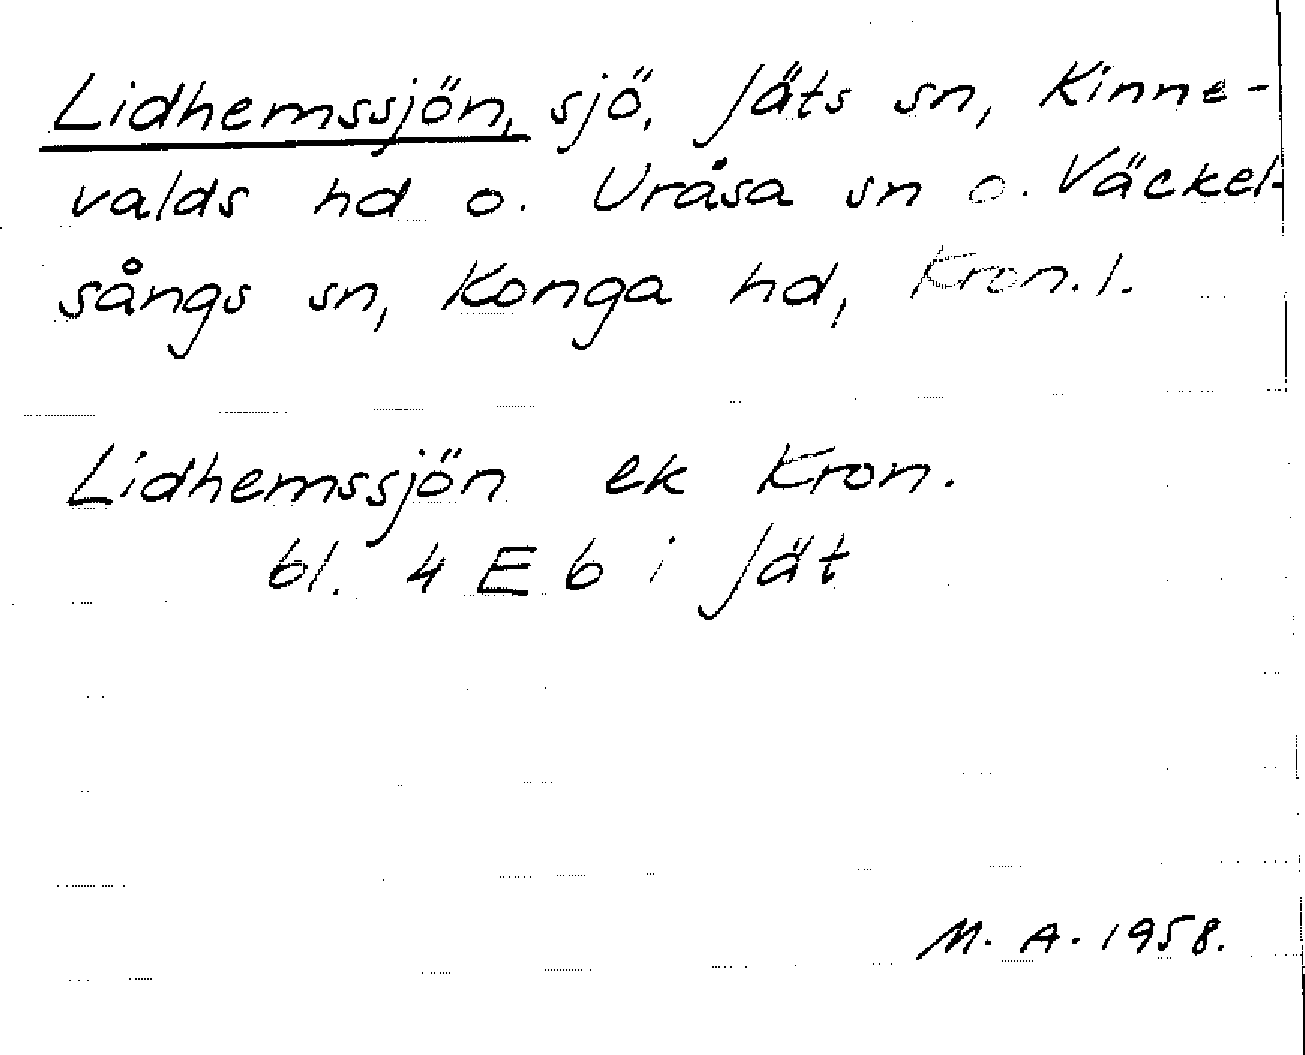 Lidhemssjön, sjö, Jäts sn, Kinne-
valds hd o. Uråsa sn o. Väckel-
sångs sn, Konga hd, Kron. l.
Lidhemssjön ek Kron.
bl. 4 E 6 i Jät
M. A. 1958.